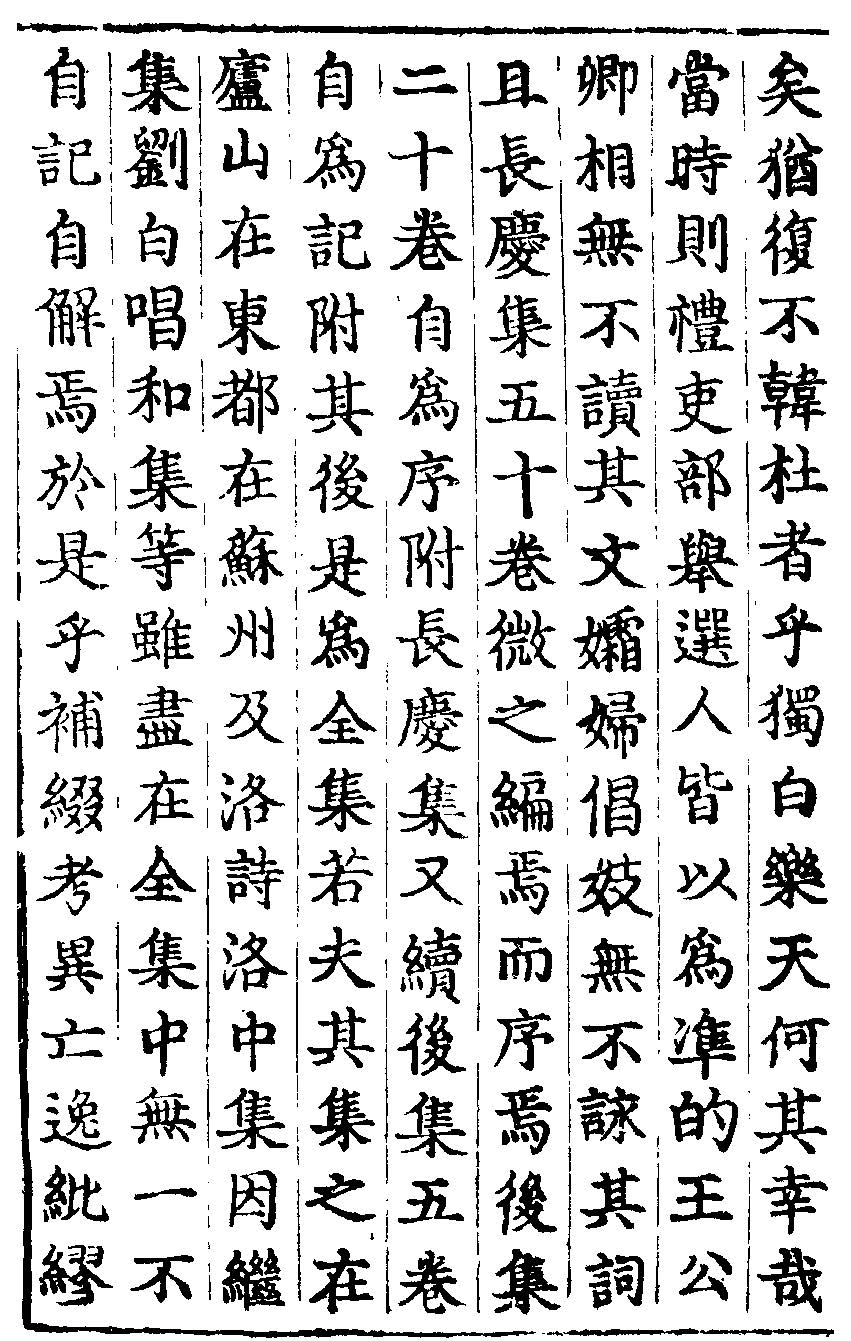 矣猶復不韓杜者乎獨白樂天何其幸哉
當時則禮吏部舉選人皆以爲準的王公
卿相無不讀其文孀婦倡妓無不詠其詞
且長慶集五十卷微之編焉而序焉後集
二十卷自爲序附長慶集又續後集五卷
自爲記附其後是爲全集若夫其集之在
廬山在東都在蘇州及洛詩洛中集因繼
集劉白唱和集等雖盡在全集中無一不
自記自解焉於是乎補綴考異亡逸紕繆